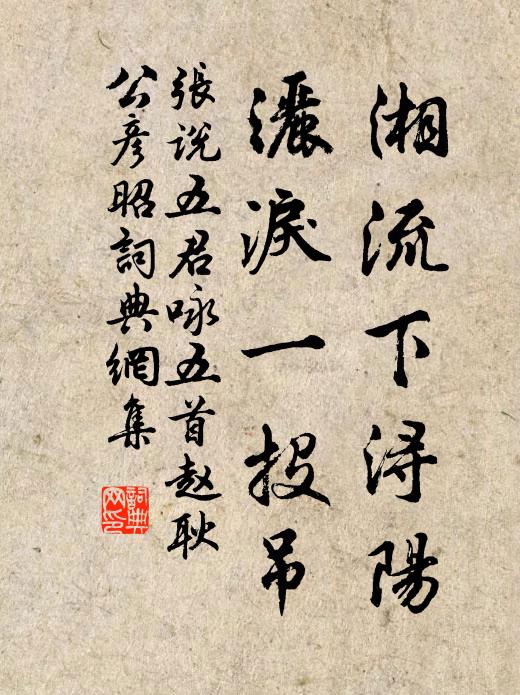 湘流下潯陽
灑淚一投吊
張說五君咏五首赵耿
公彦昭詞典網集
詞典网印